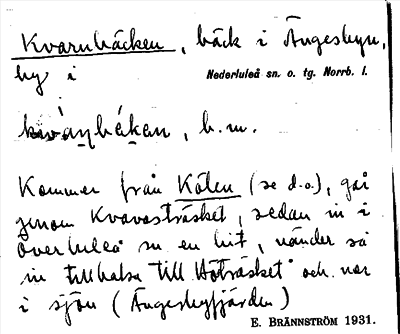 Kvarnbäcken, bäck i Ängesbyn,
by i Nederluleå sn. o. tg. Norrb. l.
b.m.
Kommer från Kölen (se d.o.), går
genom Kvavasträsket, sedan in i
Överluleå sn en bit, vänder så
in tillbaka till Höträsket och var
i sjön (Ängesbyfjärden)
E. BRÄNNSTRÖM 1931.